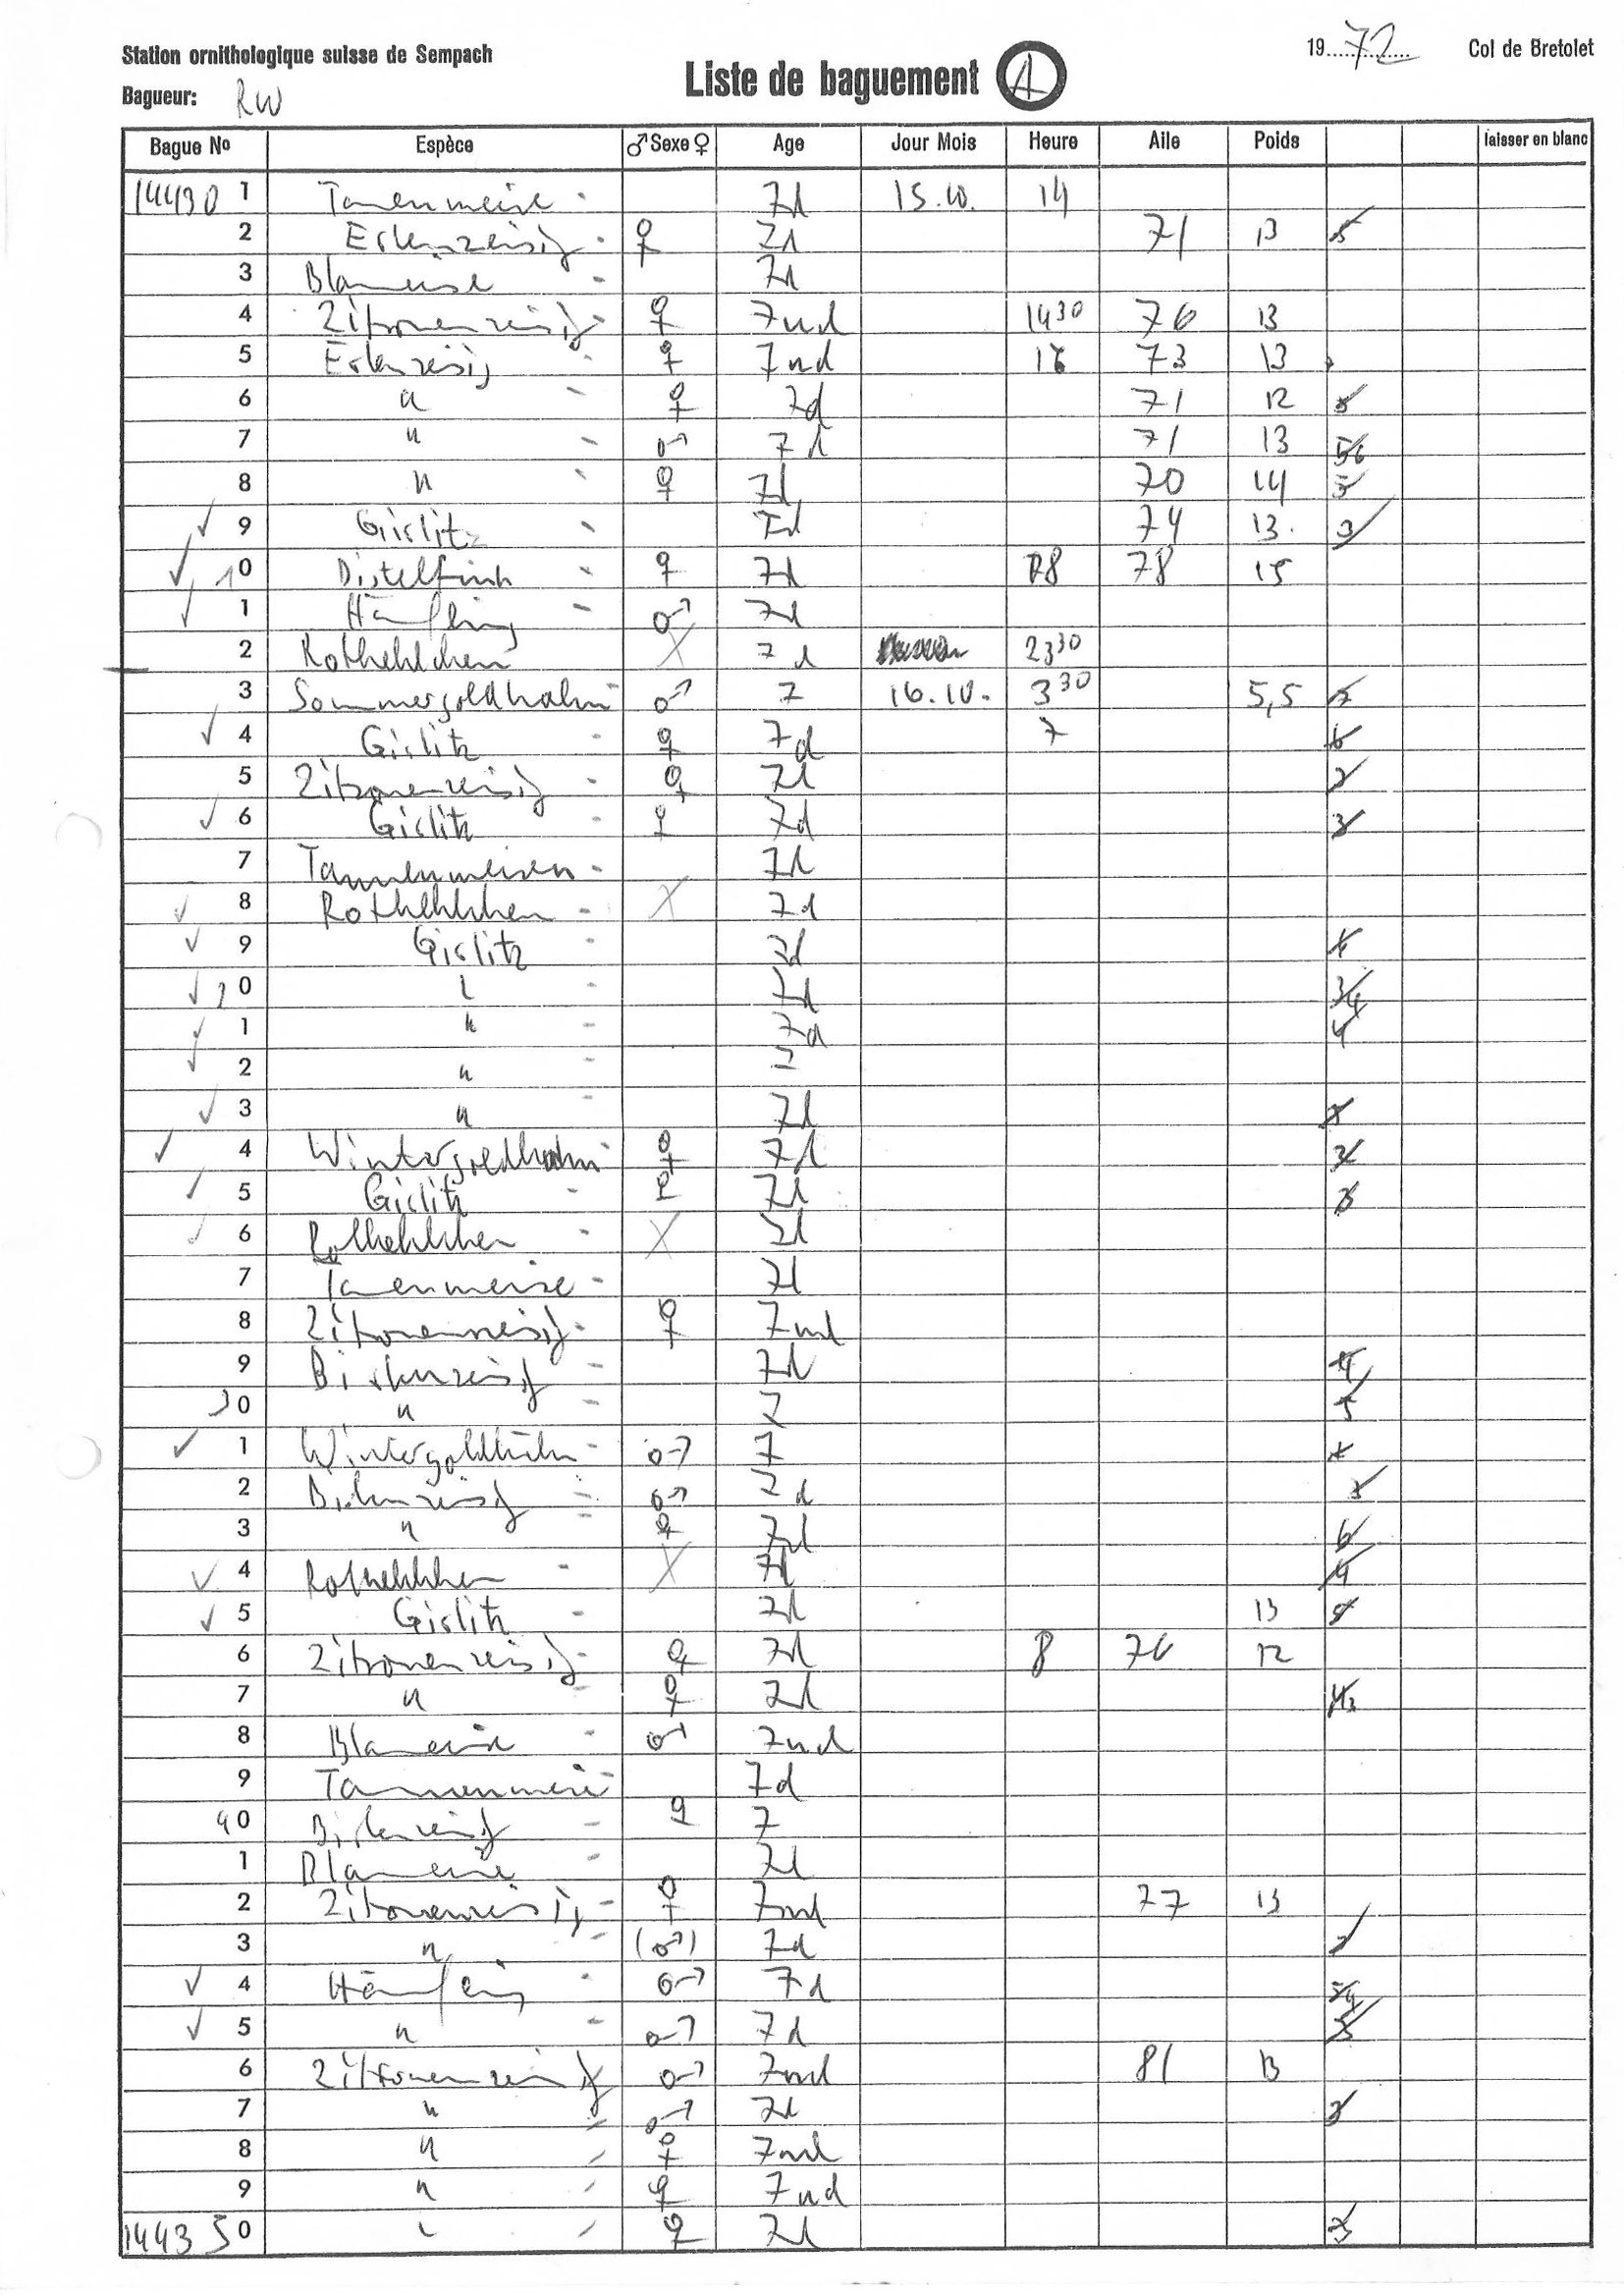 Station ornithologique suisse de Sempach
19 72 Col de Bretolet
Liste de baguement A
Bagueur: RW
Bague No Espèce ♂ Sexe ♀ Age Jour Mois Heure Aile Poids laisser en blanc
14430 1 Tanenmeise - 7d 15.10. 14
2 Erlenzeisig - ♀ 7d 71 13 5
3 Blameise - 7d
4 Zitronenzeisig - ♀ 7nd 1430 76 13
5 Erlenzeisig - ♀ 7nd 16 73 13
6 " - ♀ 7d 71 12 5
7 " - ♂ 7d 71 13 5/6
8 " - ♀ 7d 70 14 5
✓ 9 Girlitz - 7d 74 13. 3
✓ 10 Distelfink - ♀ 7d 08 78 15
✓ 1 Hänfling - ♂ 7d
2 Rothehlchen X 7d 2330
3 Sommergoldhahn - ♂ 7 16.10. 330 5,5
✓ 4 Girlitz - ♀ 7d 7 6
5 Zitronenzeisig - ♀ 7d 2
✓ 6 Girlitz - ♀ 7d 3
7 Tannenmeisen - 7d
✓ 8 Rothehlchen - X 7d
✓ 9 Girlitz - 7d
✓ 20 " - 7d 3/4
✓ 1 " - 7d 4
✓ 2 " - 7
✓ 3 " - 7d
✓ 4 Wintergoldhahn - ♀ 7d 2
✓ 5 Girlitz - ♀ 7d 3
✓ 6 Rothehlchen - X 7d
7 Tanenmeise - 7d
8 Zitronenzeisig - ♀ 7nd
9 Birkenzeisig - 7d 4
30 " - 7 5
✓ 1 Wintergoldhähn - ♂ 7
2 Birkenzeisig - ♂ 7d
3 " - ♀ 7d 6
✓ 4 Rothehlchen - X 7d 4
✓ 5 Girlitz - 7d 13
6 Zitronenzeisig - ♀ 7d 8 76 12
7 " ♀ 7d
8 Blameise - ♂ 7nd
9 Tannenmeise - 7d
40 Birkenzeisig - ♀ 7
1 Blameise - 7d
2 Zitronenzeisig - ♀ 7nd 77 13
3 " - (♂) 7d 2
✓ 4 Hänfling - ♂ 7d 3/4
✓ 5 " - ♂ 7d 3
6 Zitronenzeisig ♂ 7nd 81 13
7 " - ♂ 7d 2
8 " - ♀ 7nd
9 " - ♀ 7nd
14435 0 " - ♀ 7d 3